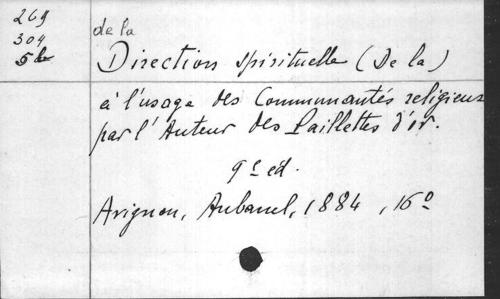 269
304
5b
de la
Direction spirituelle (De la)
à l'usage des Communautés religieux
par l'Auteur des Paillettes d'or.
9e ed.
Avignon, Aubanel, 1884, 16o